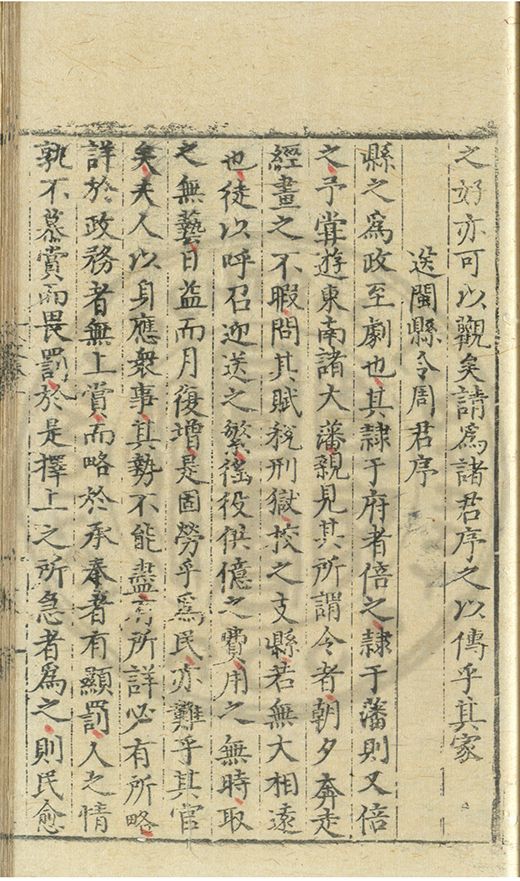 之好亦可以觀矣請爲諸君序之以傳乎其家
送閩縣令周君序
縣之爲政至劇也其隷于府者倍之隷于藩則又倍
之予嘗遊東南諸大藩親見其所謂令者朝夕奔走
經畫之不暇問其賦稅刑獄挍之支縣若無大相遠
也徒以呼召迎送之繁徭役供億之費用之無時取
之無藝日益而月復增是固勞乎爲民亦難乎其官
矣夫人以身應衆事其勢不能盡有所詳必有所略
詳於政務者無上賞而略於承奉者有顯罰人之情
孰不慕賞而畏罰於是擇上之所急者爲之則民愈